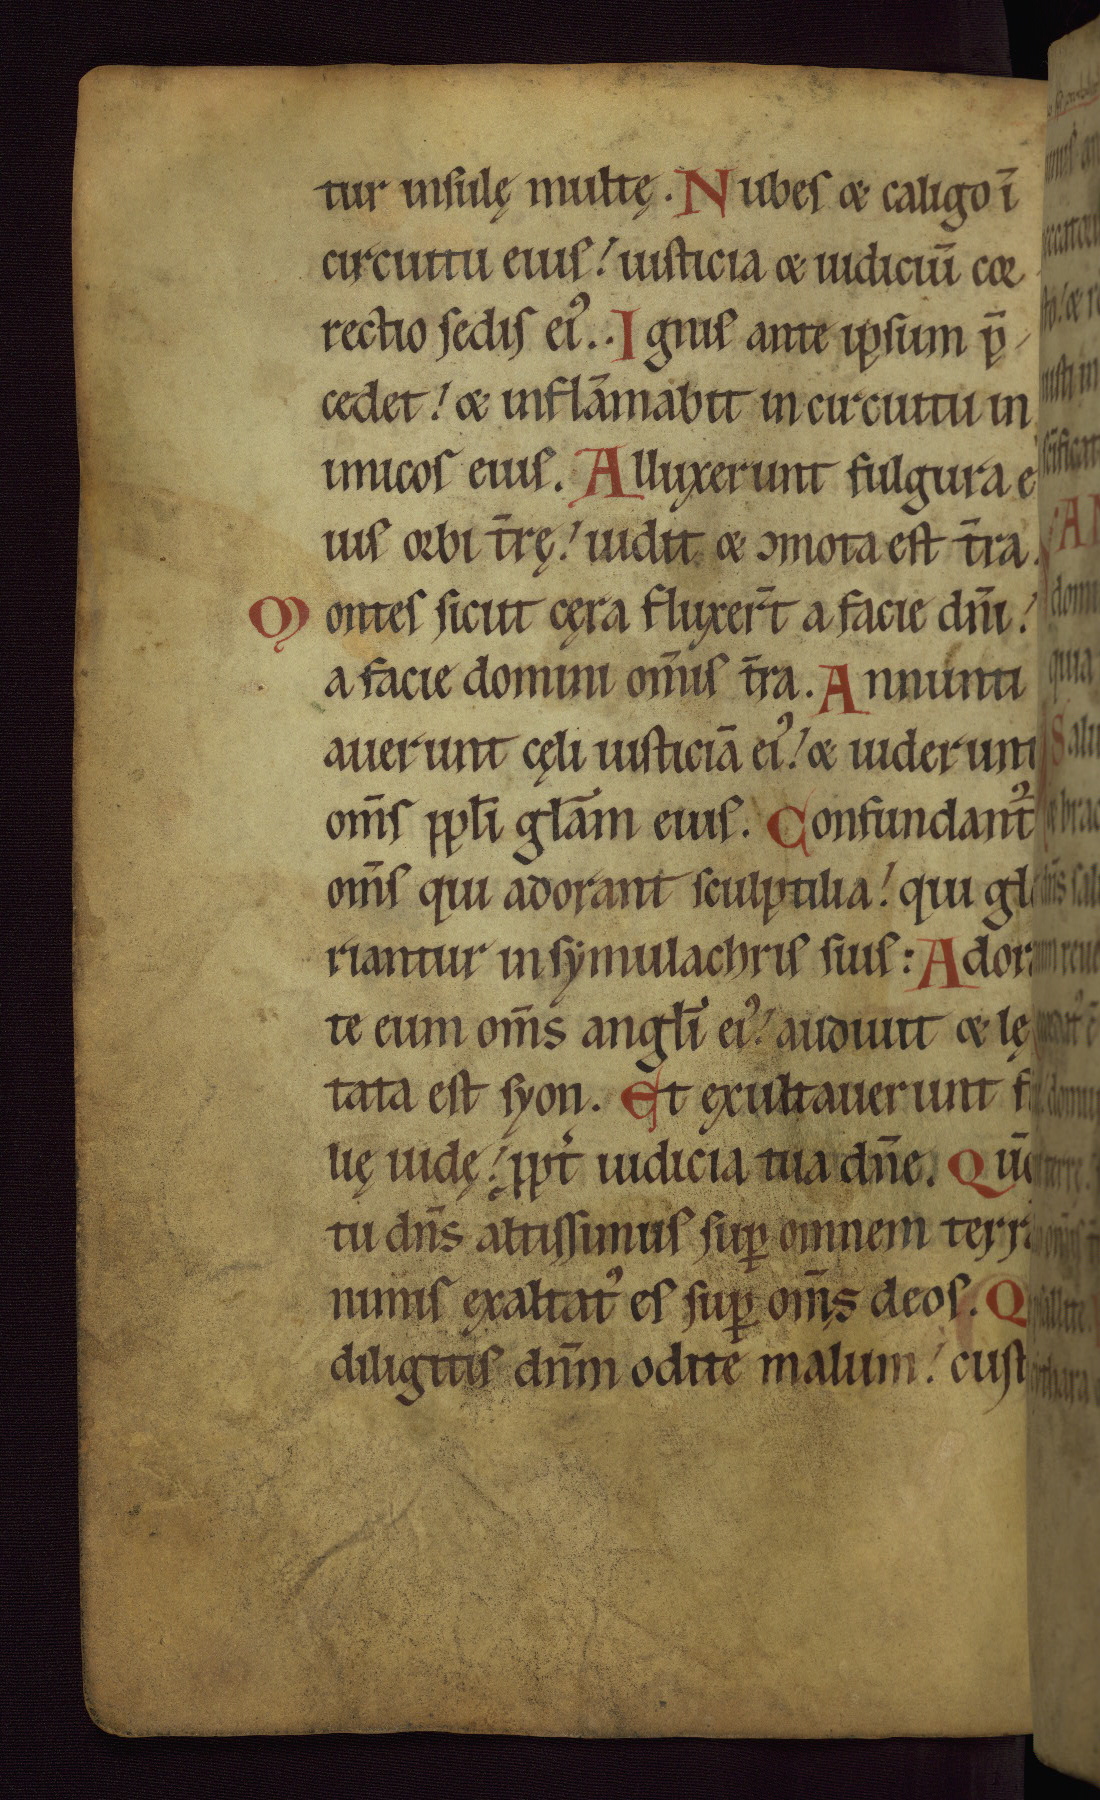 tur insulę multę. Nubes & caligo ī
circuitu eius! iusticia & iudiciū cor
rectio sedis ei⁹.. Ignis ante ipsum p̄
cedet! & inflāmabit in circuitu in
imicos eius. Alluxerunt fulgura e
ius orbi t̄rę! uidit & ↄmota est t̄ra.
Montes sicut cęra fluxer̄t a facie dn̄i!
a facie domini om̄is t̄ra. Annunti
auerunt cęli iusticiā ei⁹! & uiderunt
om̄s pp̄li gl̄am eius. Confundant᷒
om̄s qui adorant sculptilia! qui gl
riantur in symulachris suis: Ador
te eum om̄s angl̄i ei⁹! audiuit & lę
tata est syon. Et exultauerunt fi
lię iudę! ppt̄ iudicia tua dn̄e. Qūo
tu dn̄s altissimus sup̱ omnem terr
nimis exaltat⁹ es sup̱ om̄s deos. Q
diligitis dn̄m odite malum! cust